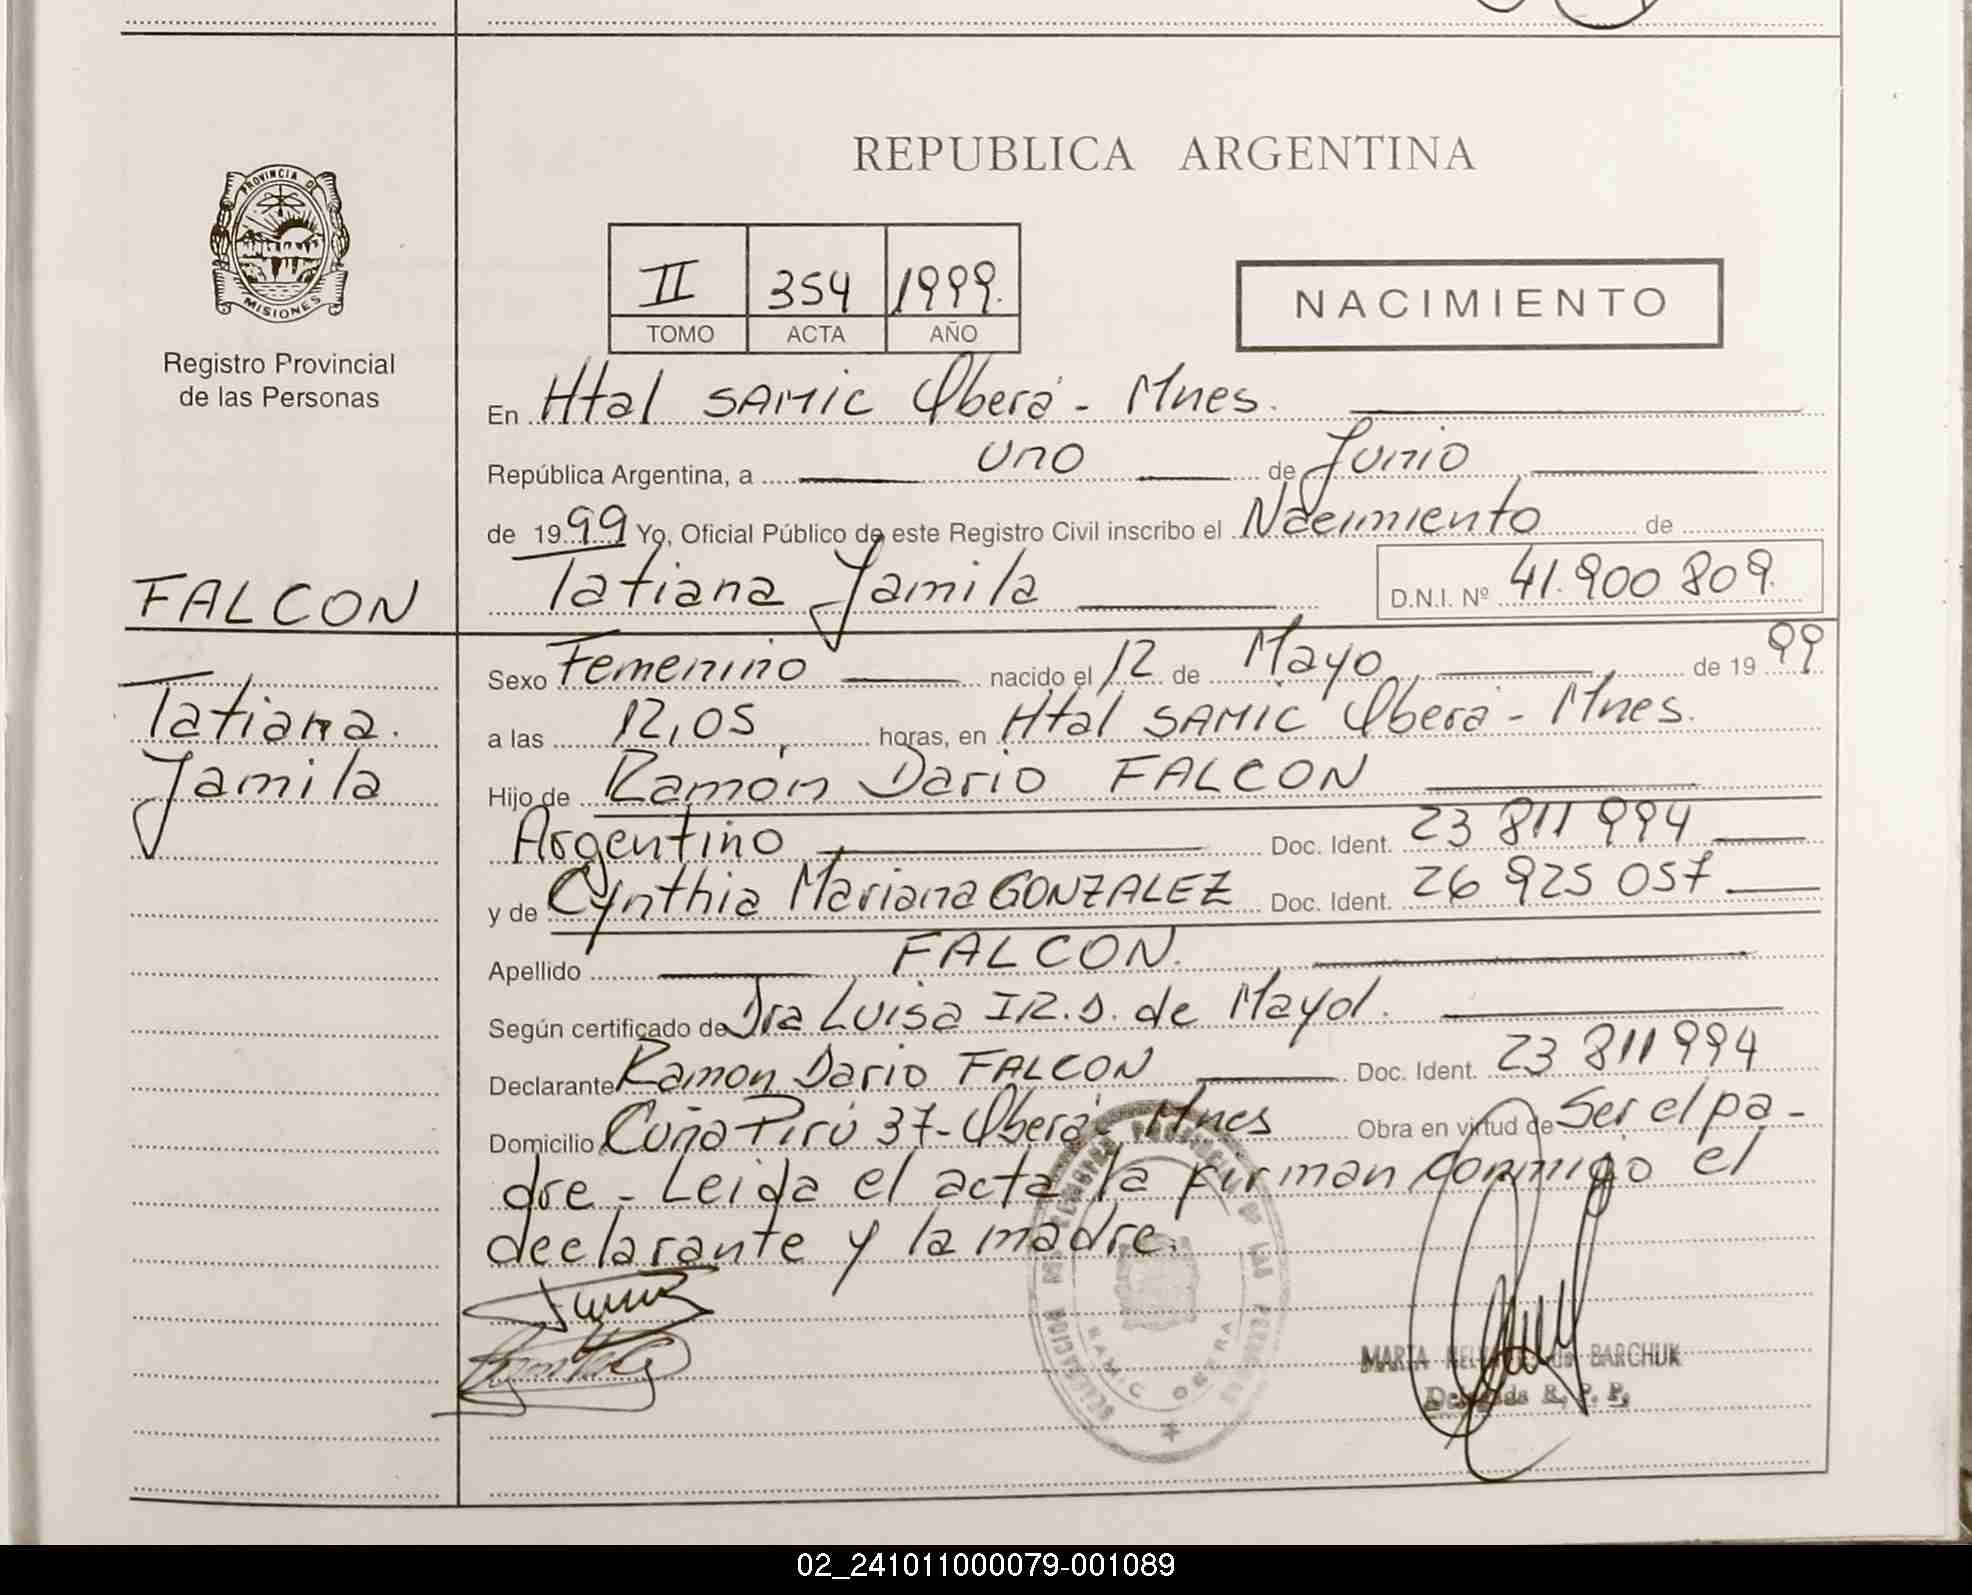 REPUBLICA ARGENTINA
PROVINCIA DE
MISIONES
Registro Provincial
de las Personas
II 354 1999.
TOMO ACTA AÑO
NACIMIENTO
En Htal SAMIC Oberá - Mnes.
República Argentina, a uno de Junio
de 1999 Yo, Oficial Público de este Registro Civil inscribo el Nacimiento de
Tatiana Yamila D.N.I. Nº 41.900 809.
FALCON
Tatiana.
Yamila
Sexo Femenino nacido el 12 de Mayo de 1999
a las 12,05 horas, en Htal SAMIC Oberá - Mnes.
Hijo de Ramón Dario FALCON
Argentino Doc. Ident. 23 811 994
y de Cynthia Mariana GONZALEZ Doc. Ident. 26 925 057
Apellido FALCON.
Según certificado de Dra Luisa I.R.D. de Mayol.
Declarante Ramon Dario FALCON Doc. Ident. 23 811 994
Domicilio Cuña Pirú 37 - Oberá - Mnes Obra en virtud de Ser el pa-
dre - Leida el acta la firman conmigo el
declarante y la madre.
DELEGACION DEL REGISTRO PROVINCIAL DE LAS PERSONAS
SAMIC OBERA
MARTA BARCHUK
Delegada R. P. P.
02_241011000079-001089